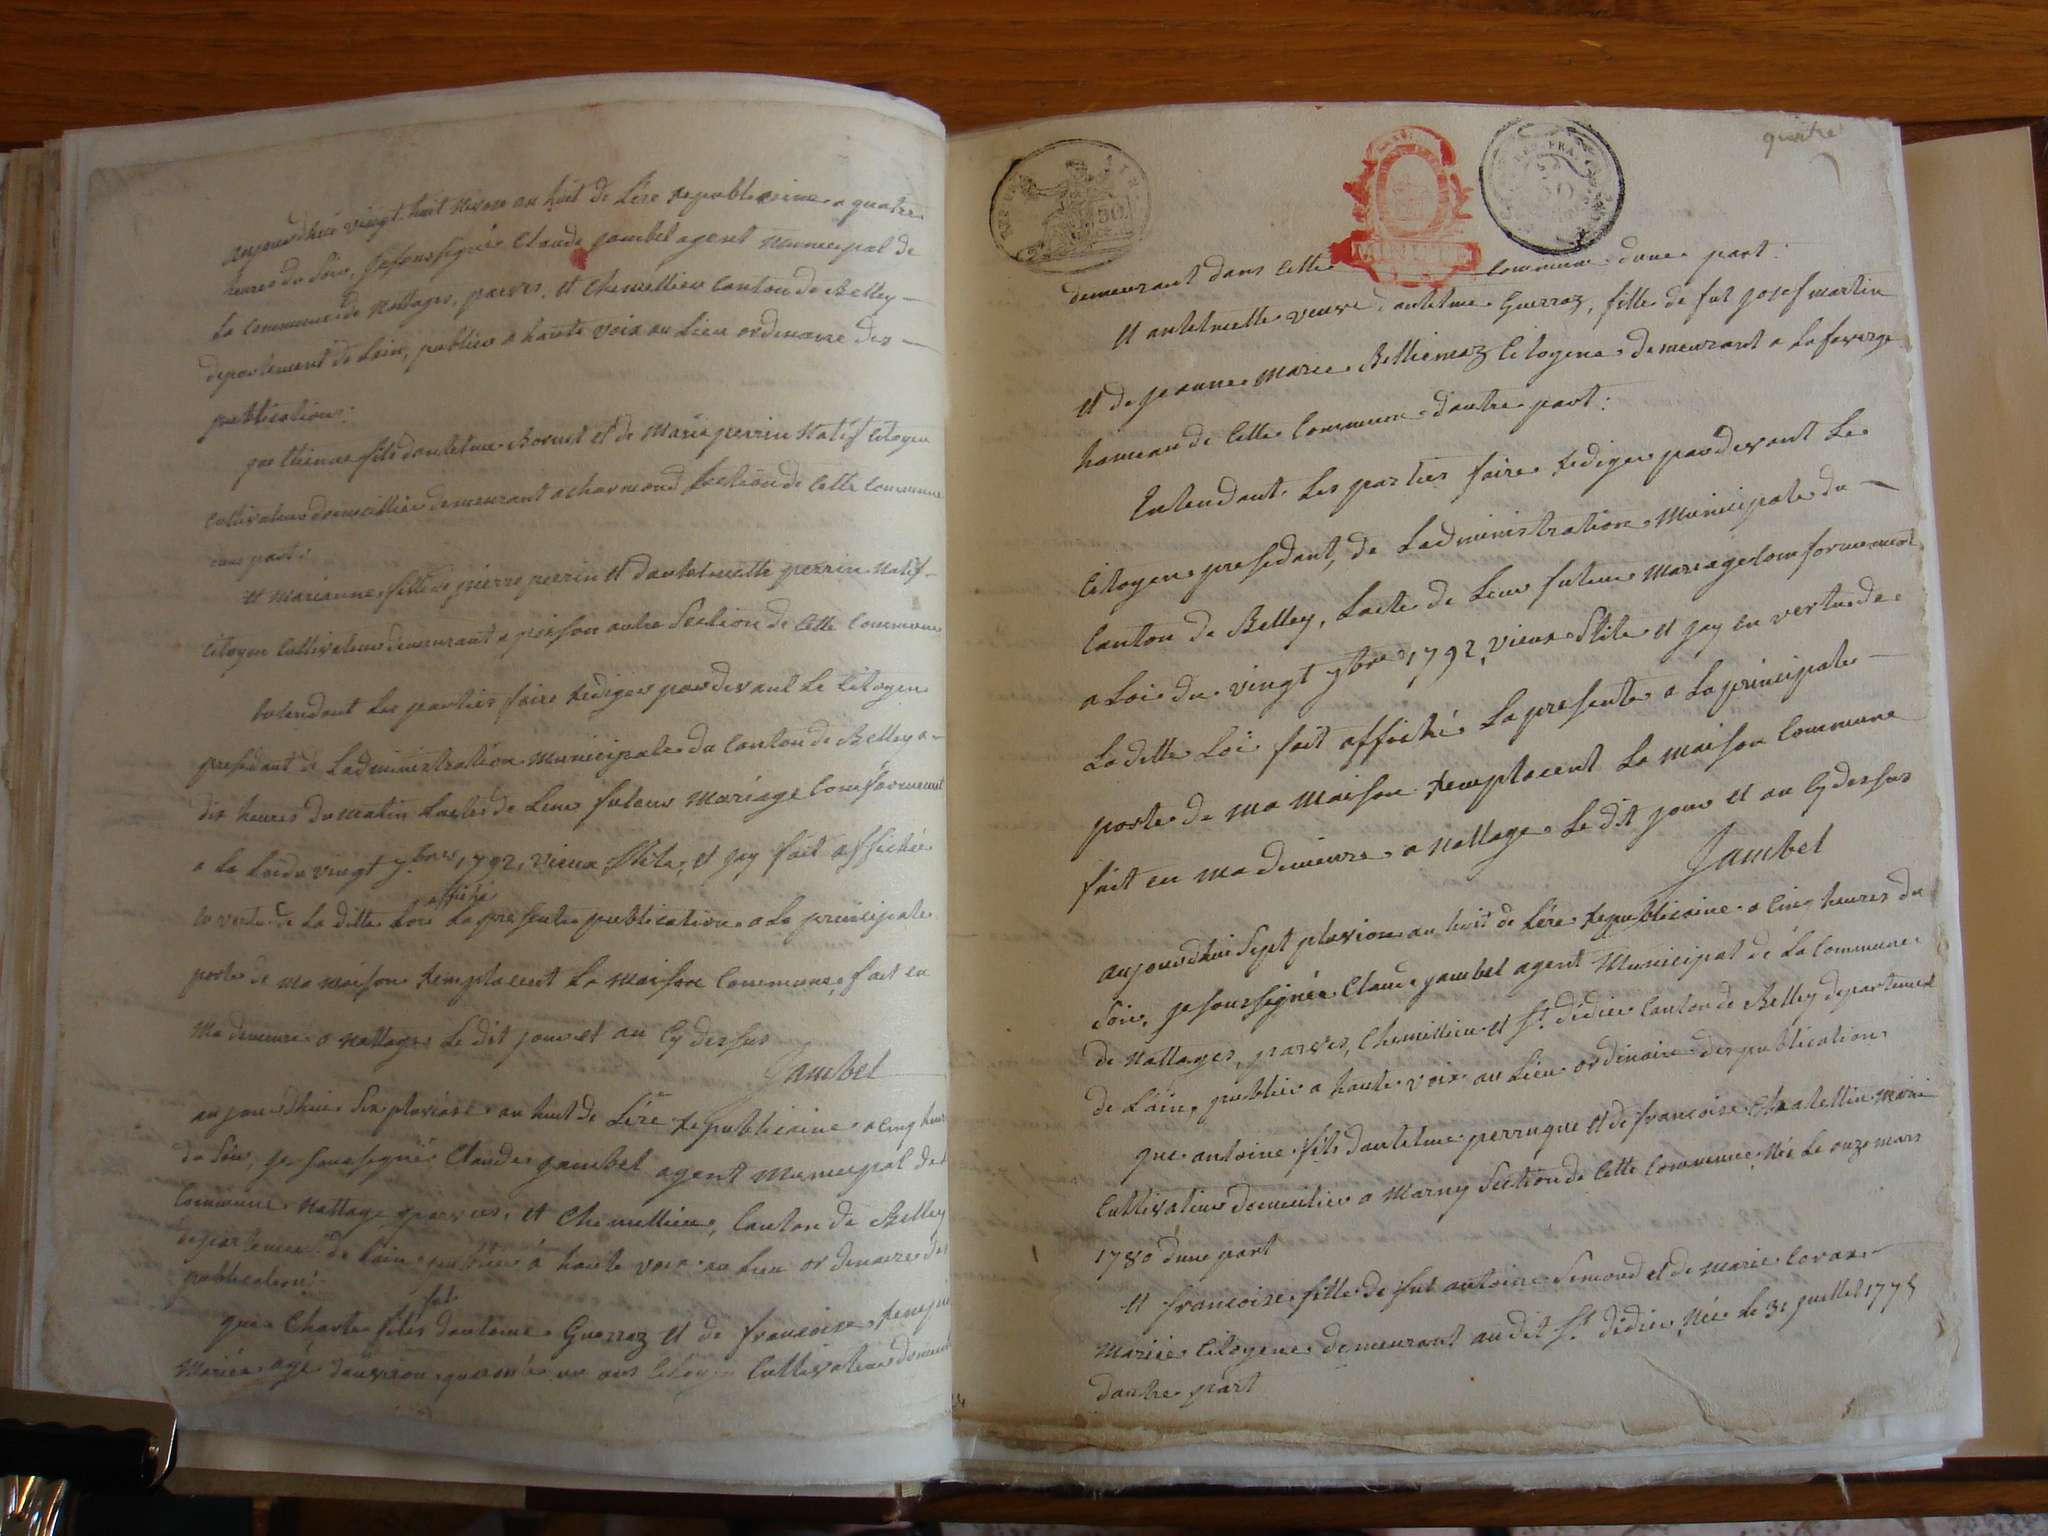 aujourdhui vingt huit nivose an huit de Lére Republicaine a quatre
heures du soir, Je soussigné Claude jambel agent municipal de
la commune de Nattages, parves, et Chemillieu Canton de Belley
departement de Lain, publier a haute voix au Lieu ordinaire des
publication:
fils dantelme Bornet et de Marie perrin Natif Citoyen
Cultivateur domicillié demeurant a charmond section de cette commune
une part:
et marianne fille de pierre perrin et dantelmette perrin Natif
Citoyen Cultivateur demeurant a autre section de cette commune
Entendant Les parties faire Rediger pardevant Le Citoyen
presidant de Ladministration Municipale du Canton de Belley a
dix heures du matin Lacte de Leur futeur Mariage Conformement
a La Loi du vingt 7bre 1792, vieux Stile, et jay fait affichée
En vertu de La ditte Loi affiché La presente publication a La principale
porte de ma maison Remplacent La maison Commune, fait en
Ma demeure a Nattages Le dit jour et an Cy dessus
Jambel
aujourdhui six pluviose an huit de Lére Republicaine a Cinq heures
du Soir, Je soussigné Claude jambel agent Municipal de
Commune Nattage parves, et Chemillieu, Canton de Belley
departement de Lain publier a haute voix au Lieu ordinaire des
publication:
que Charle fils fut dantoine Guerraz et de francoise
Mariée agé danviron ans Citoyen Cultivateur
quatre
demeurant dans cette commune dune part:
Et antelmette veuve dantelme Guerraz, fille de fut josef martin
et de jeanne marie Belliemaz Citoyene demeurant a La faverge
hameau de Cette Commune dautre part:
Entendant Les parties faire Rediger pardevant Le
Citoyen presidant, de Ladministration Municipale du
Canton de Belley, Lacte de Leur futeur Mariage Conformement
a Loi du vingt 7bre 1792, vieux Stile et jay en vertu de
La ditte Loi fait affiché La presente a La principale
porte de ma Maison Remplacent La maison Commune
fait en ma demeure a Nattage Le dit jour et an Cy dessus
Jambel
aujourdhui Sept pluviose an huit de Lére Republicaine a Cinq heures du
Soir, Je soussignée Claude jambel agent Municipal de La Commune
de Nattages, parves, Chemillieu et St. didier Canton de Belley departement
de Lain, publier a haute voix au Lieu ordinaire des publication
que antoine fils dantelme perruque et de francoise Chatellin
Cultivateur domicilier a Marny Section de Cette Commune Née Le onze mars
1780 dune part
et francoise fille de fut antoine Simond et de marie
Mariée Citoyene demeurant au dit St. didier, Née Le 31 juillet 1775
dautre part